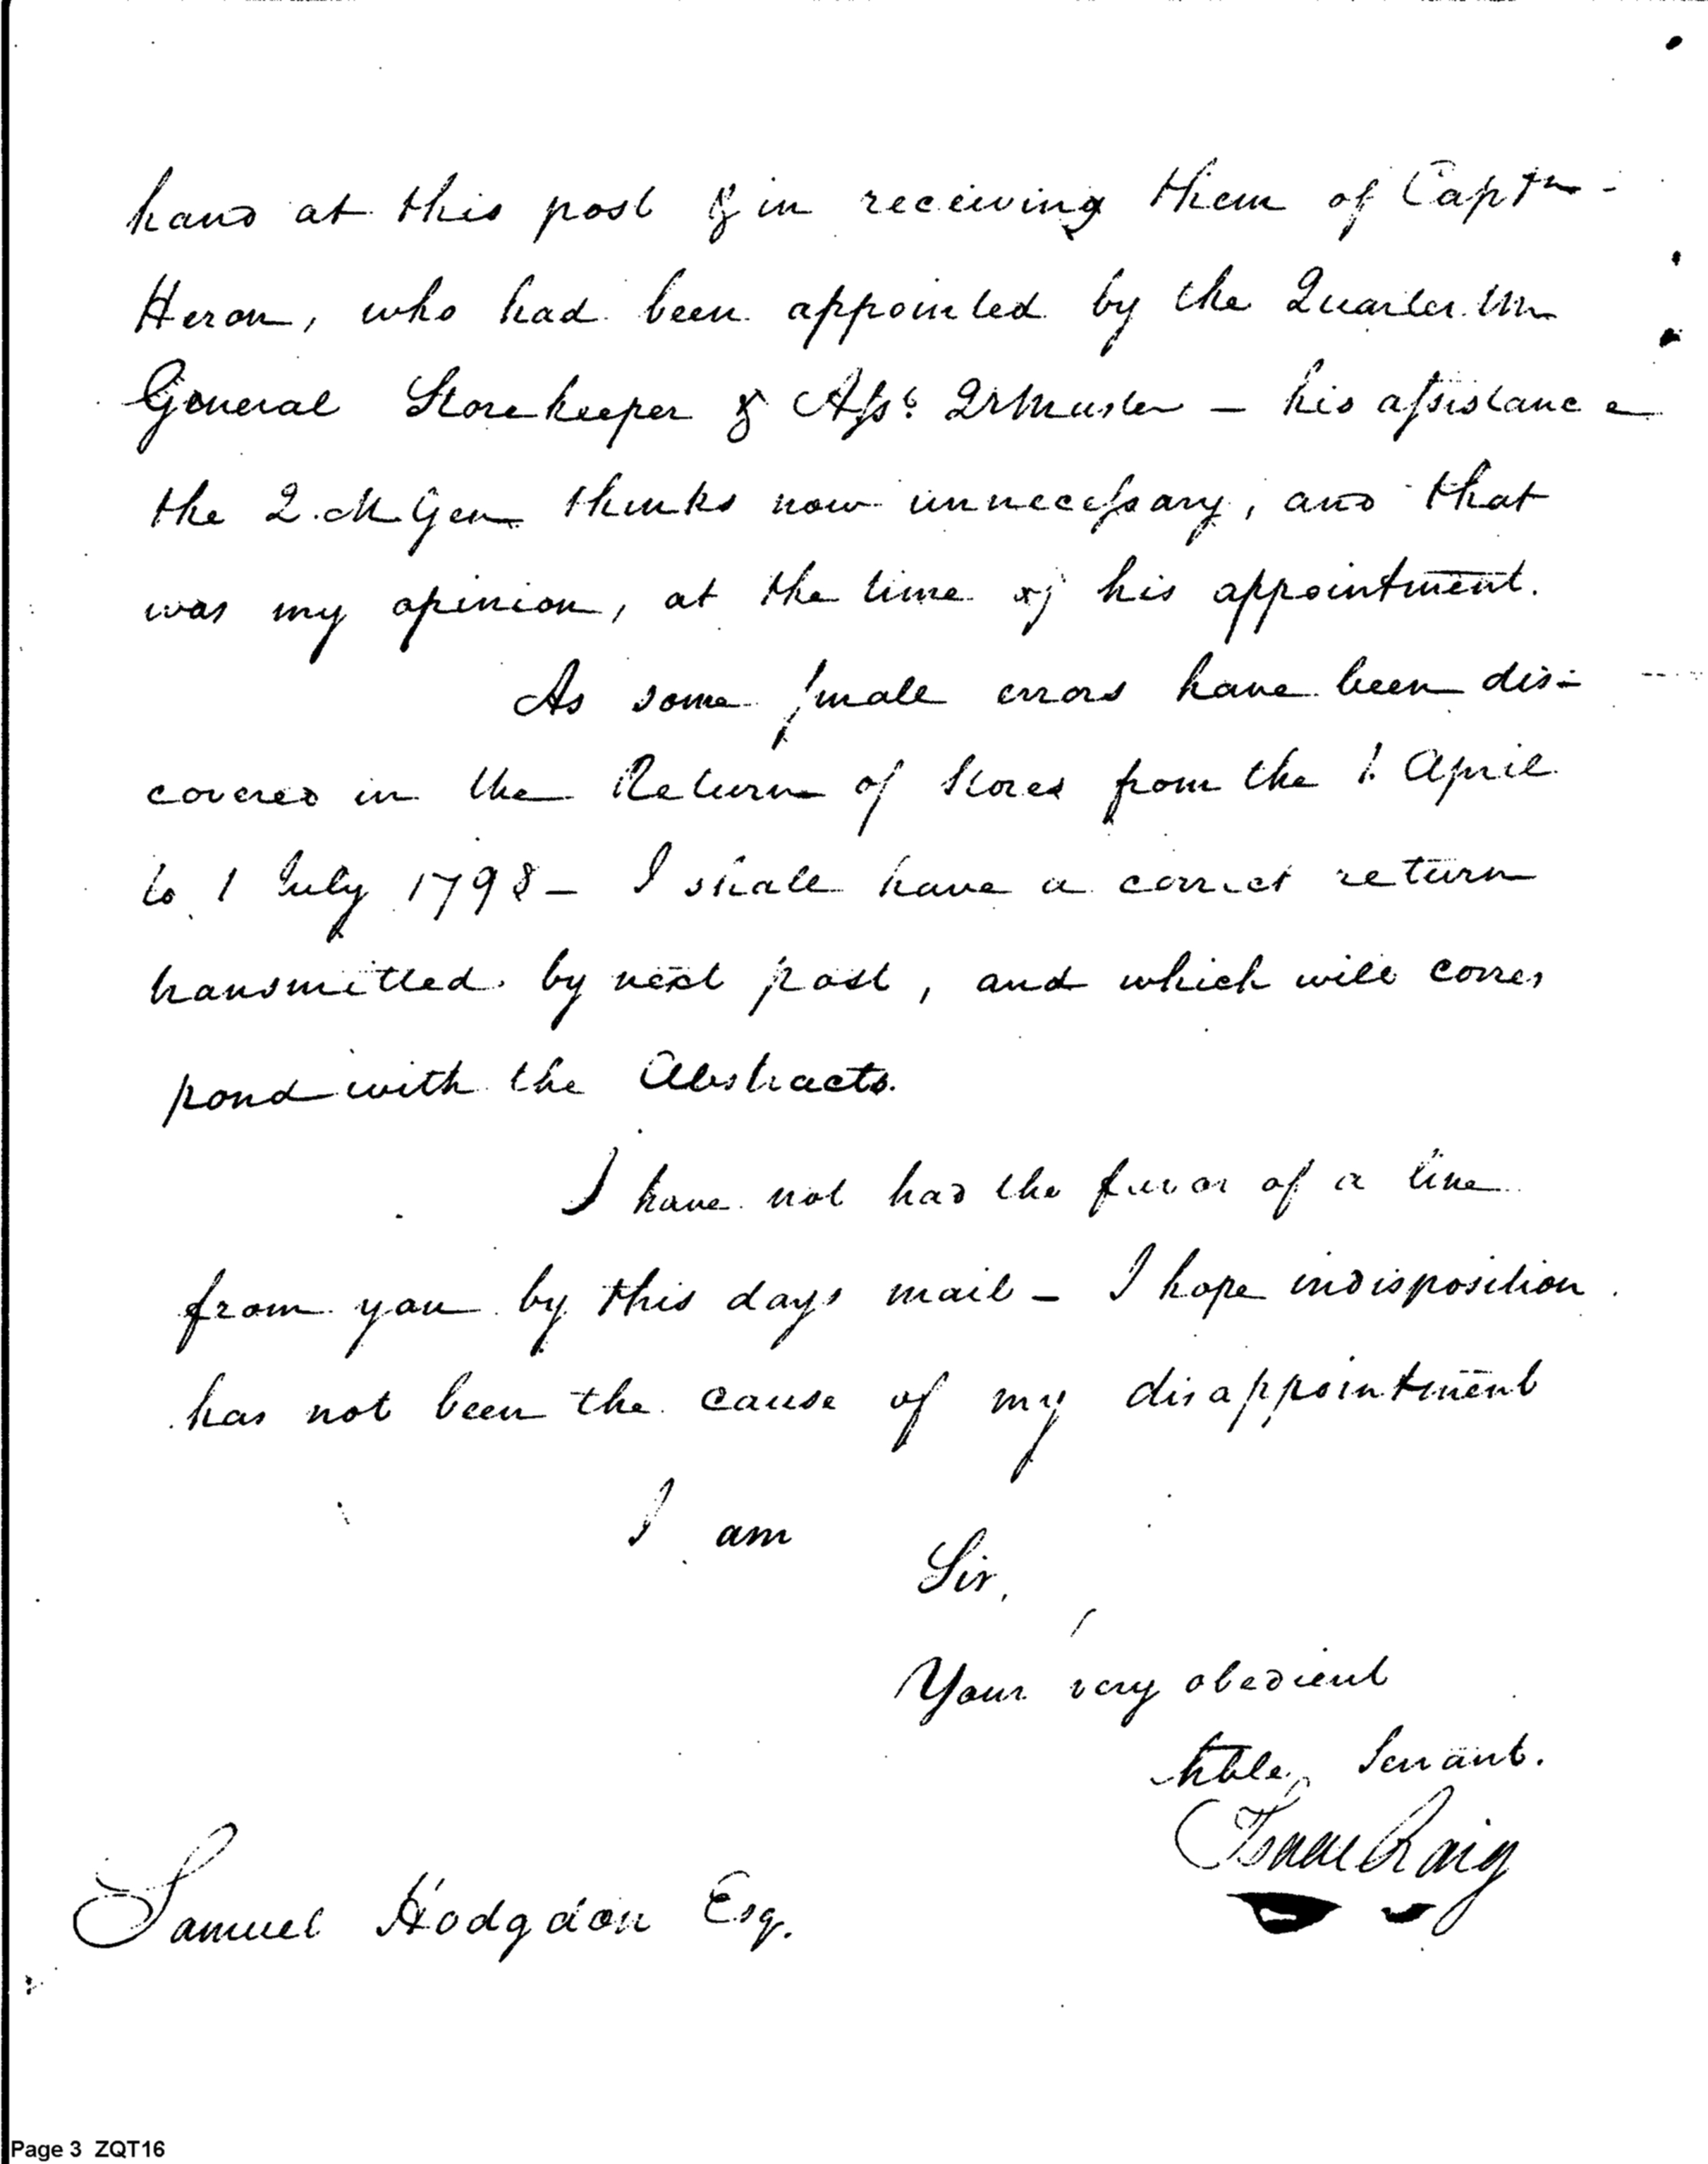 hand at this post & in receiving them of Captn -
Heron, who had been appointed by the Quarter M
General Storekeeper & Asst. QrMaster — his assistance
the Q. M Gen thinks now unnecessary, and that
was my opinion, at the time of his appointment.
As some small errors have been dis-
covered in the Return of Stores from the 1. April
to 1 July 1798 — I shall have a correct return
transmitted by next post, and which will corres,
pond with the Abstracts.
I have not had the favor of a line
from you by this days mail — I hope indisposition
has not been the cause of my disappointment
I am
Sir,
Your very obedient
hble, Servant.
Isaac Craig
Samuel Hodgdon Esq.
Page 3 ZQT16